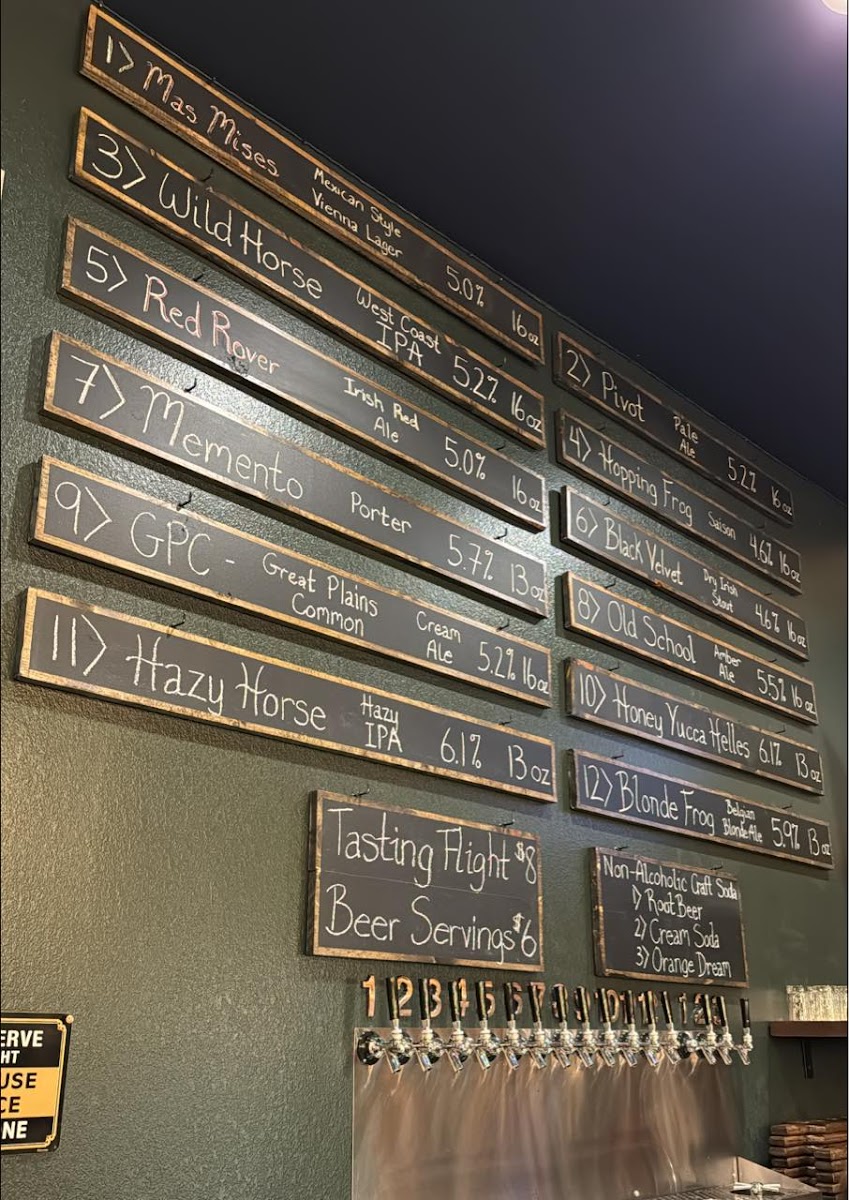 1> Mas Mises Mexican Style Vienna Lager 5.0% 16oz
3> Wild Horse West Coast IPA 5.2% 16oz
5> Red Rover Irish Red Ale 5.0% 16oz
7> Memento Porter 5.7% 13oz
9> GPC - Great Plains Common Cream Ale 5.2% 16oz
11> Hazy Horse Hazy IPA 6.1% 13oz
2> Pivot Pale Ale 5.2% 16oz
4> Hopping Frog Saison 4.6% 16oz
6> Black Velvet Dry Irish Stout 4.6% 16oz
8> Old School Amber Ale 5.5% 16oz
10> Honey Yucca Helles 6.1% 13oz
12> Blonde Frog Belgian Blonde Ale 5.9% 13oz
Tasting Flight $8
Beer Servings $6
Non-Alcoholic Craft Soda
1> Root Beer
2> Cream Soda
3> Orange Dream
1 2 3 4 5 6 7 8 9 10 11 1 2 3
ERVE
HT
USE
CE
NE